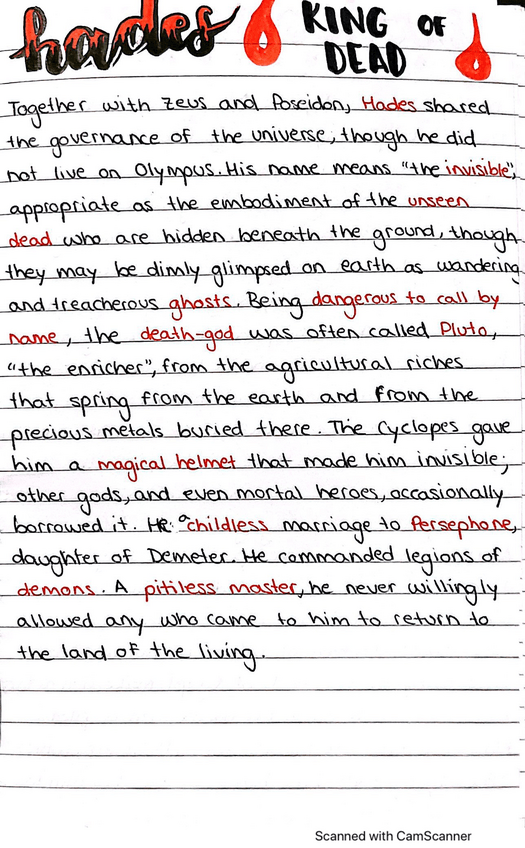 hades KING OF
DEAD
Together with Zeus and Poseidon, Hades shared
the governance of the universe, though he did
not live on Olympus. His name means "the invisible",
appropriate as the embodiment of the unseen
dead who are hidden beneath the ground, though
they may be dimly glimpsed on earth as wandering
and treacherous ghosts. Being dangerous to call by
name, the death-god was often called Pluto,
"the enricher", from the agricultural riches
that spring from the earth and from the
precious metals buried there. The Cyclopes gave
him a magical helmet that made him invisible;
other gods, and even mortal heroes, occasionally
borrowed it. a childless marriage to Persephone,
daughter of Demeter. He commanded legions of
demons. A pitiless master, he never willingly
allowed any who came to him to return to
the land of the living.
Scanned with CamScanner